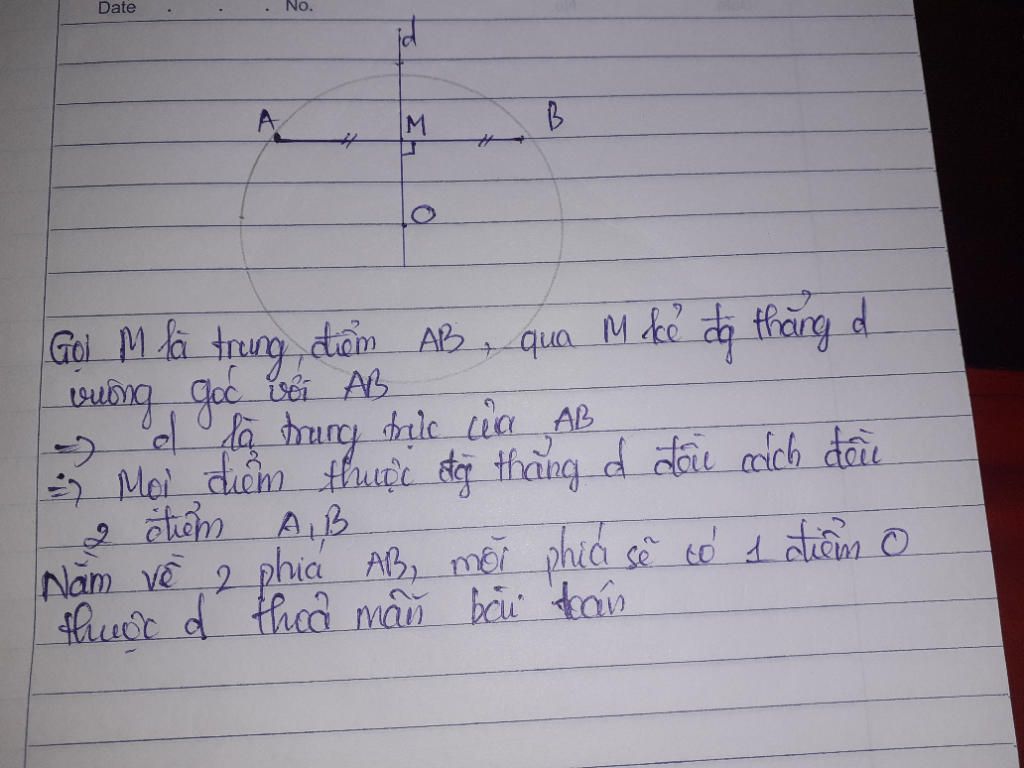 Date . . . No.
d
A M B
O
Gọi M là trung điểm AB, qua M kẻ đg thẳng d
vuông góc với AB
=> d là trung trực của AB
=> Mọi điểm thuộc đg thẳng d đều cách đều
2 điểm A, B
Nằm về 2 phía AB, mỗi phía sẽ có 1 điểm O
thuộc d thoả mãn bài toán